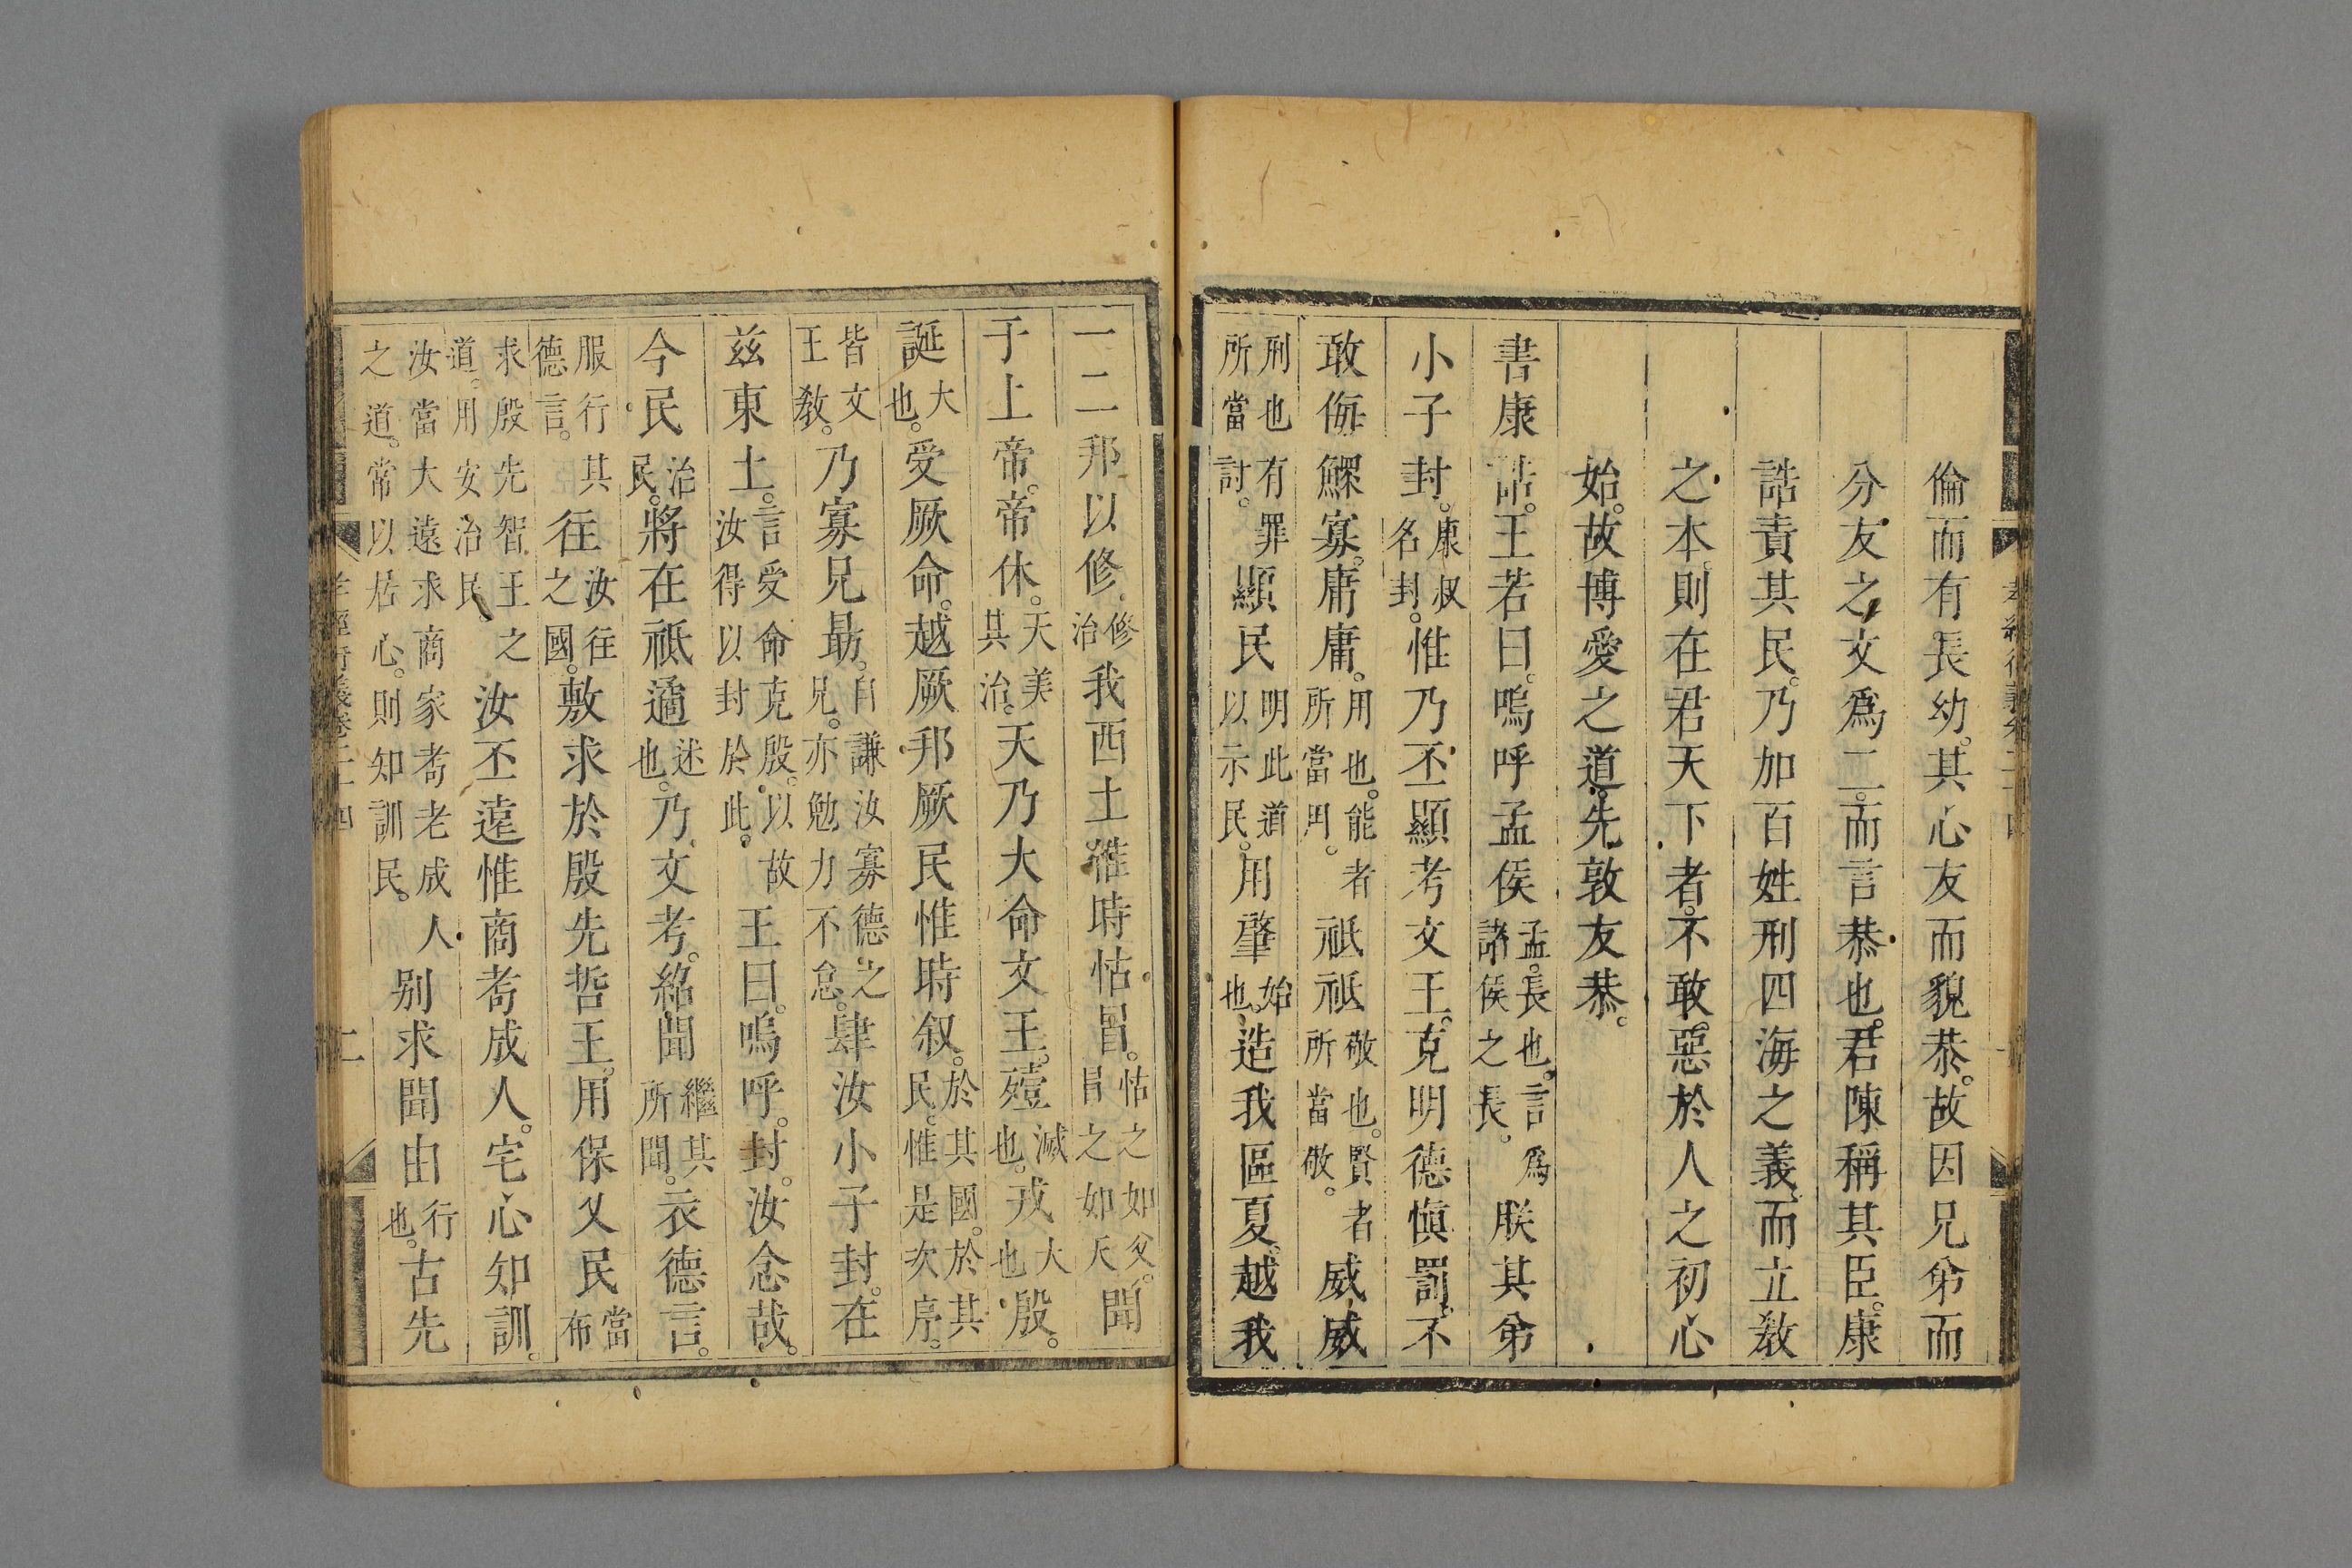 倫而有長幼。其心友而貌恭。故因兄弟而
分友之文爲二。而言恭也。君陳稱其臣。康
誥責其民。乃加百姓刑四海之義。而立敎
之本。則在君天下者。不敢惡於人之初心
始。故博愛之道。先敦友恭。
書康誥。王若曰。嗚呼孟侯孟。長也。言爲諸侯之長。朕其弟
小子封。康叔名封。惟乃丕顯考文王。克明德愼罰。不
敢侮鰥寡。庸庸。用也。能者所當用。祗祗敬也。賢者所當敬。威威
刑也有罪所當討。顯民明此道以示民。用肇始也。造我區夏。越我
一二邦以修修治我西土惟時怙冒。怙之如父。冒之如天聞
于上帝。帝休。天美其治。天乃大命文王。殪滅也。戎大也殷。
誕大也。受厥命。越厥邦厥民惟時叙。於其國。於其民。惟是次序。
皆文王敎。乃寡兄勗。自謙汝寡德之兄。亦勉力不怠。肆汝小子封。在
玆東土。言受命克殷。以故汝得以封於此。王曰。嗚呼。封。汝念哉。
今民治民。將在祗遹述也。乃文考。紹聞繼其所聞。衣德言。
服行其德言。往汝往之國。敷求於殷先哲王。用保乂民當布
求殷先智王之道。用安治民汝丕遠惟商耇成人。宅心知訓。
汝當大遠求商家耇老成人之道。常以居心。則知訓民。别求聞由行也。古先
二